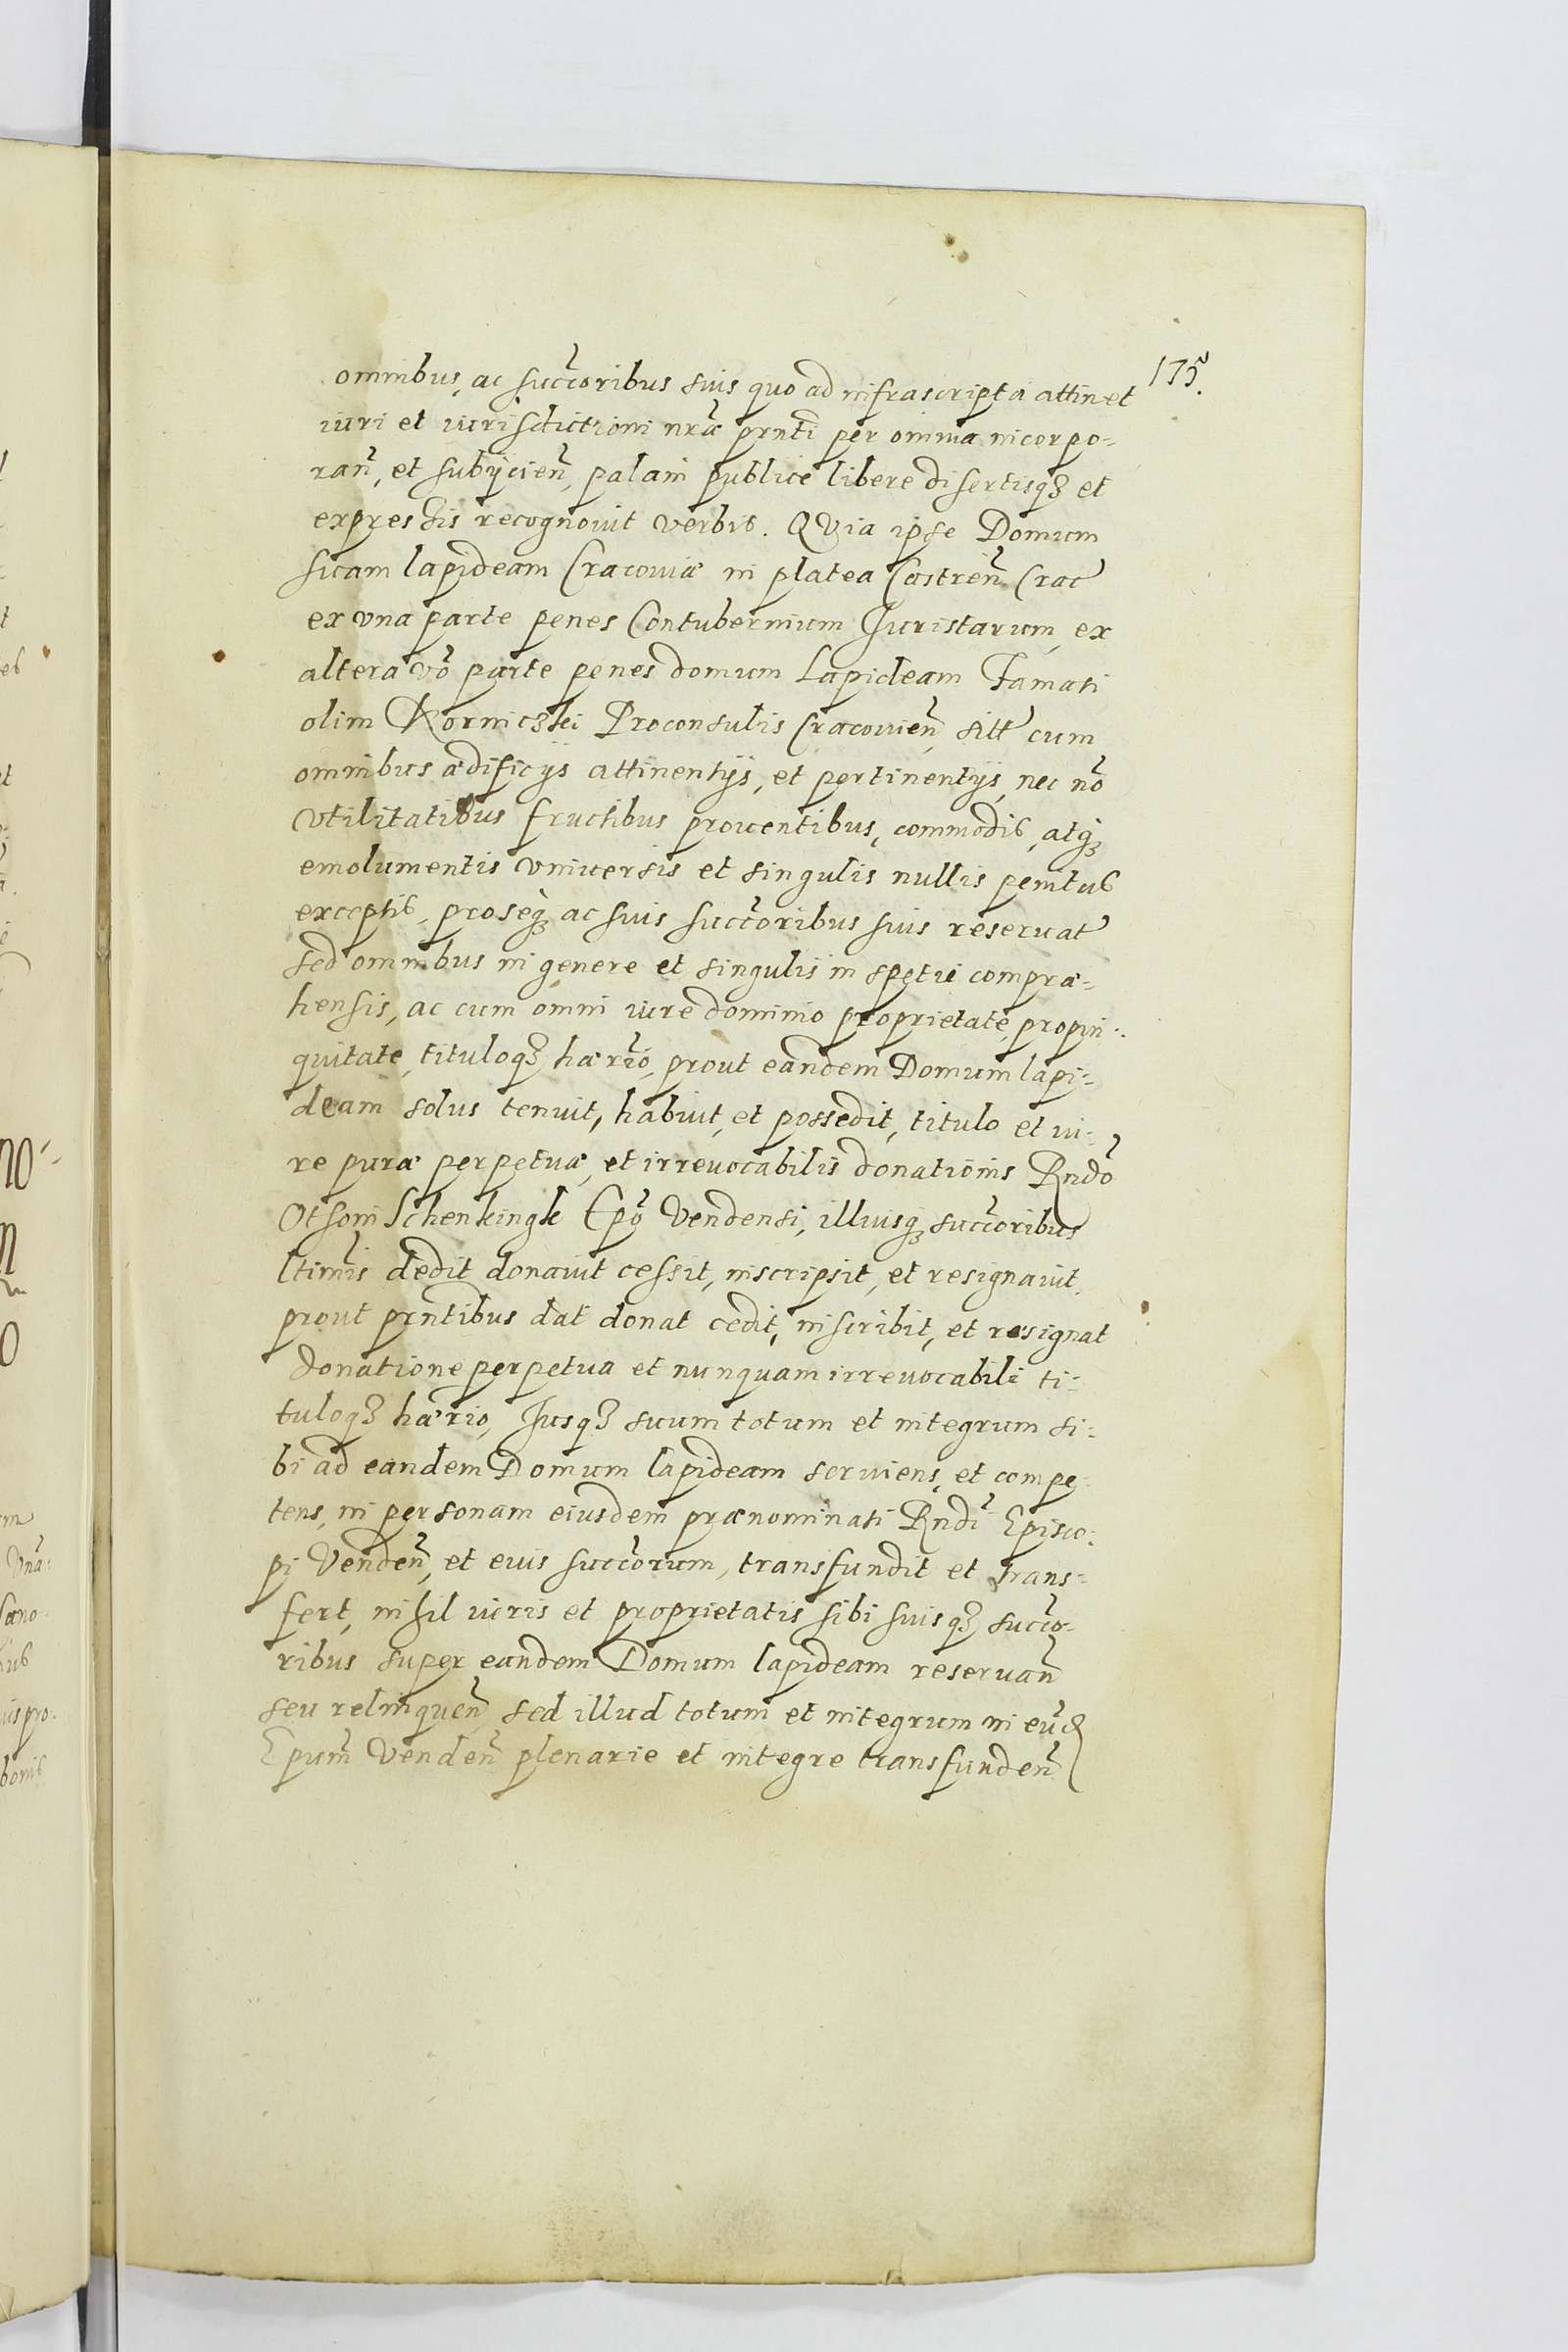 175.
omnibus, ac succ̃oribus suis quo ad infrascripta attinet
iuri et iurisdictioni nr̃æ prñti per omnia incorpo-
rañ, et subijcieñ, palam publice libere disertisq3 et
expressis recognouit verbis. QVia ipse Domum
suam lapideam Cracouiæ in platea Castreñ Crac̃
ex vna parte penes Contubernium Juristarum, ex
altera võ parte penes domum Lapideam Famati
olim Korniczki Proconsulis Cracouieñ, sitt̃ cum
omnibus ædificijs attinentijs, et pertinentijs, nec nõ
vtilitatibus fructibus prouentibus, commodis, atq3
emolumentis vniuersis et singulis nullis penitus
exceptis, proseq3 ac suis succ̃oribus suis reseruat̃
sed omnibus in genere et singulis in spetie compræ-
hensis, ac cum omni iure dominio proprietate, propin-
quitate, tituloq3 hær̃io, prout eandem Domum lapi-
deam solus tenuit, habuit, et possedit, titulo et iu-
re puræ perpetuæ, et irreuocabilis donationis Rndõ
Otsoni Schenkingk Epõ Vendensi, illiusq3 succ̃oribus
ltimis̃ dedit donauit cessit, inscripsit, et resignauit,
prout prñtibus dat donat cedit, inscribit, et resignat
donatione perpetua et nunquam irreuocabili ti-
tuloq3 hær̃io, Jusq3 suum totum et integrum si-
bi ad eandem Domum lapideam seruiens, et compe-
tens, in personam eiusdem prænominati Rndĩ Episco-
pi Vendeñ, et eius succ̃orum, transfundit et trans-
fert, nihil iuris et proprietatis sibi suisq3 succ̃o-
ribus super eandem Domum lapideam reseruañ
seu relinqueñ, sed illud totum et integrum in eũd
Epum̃ Vendeñ plenarie et integre transfundeñ